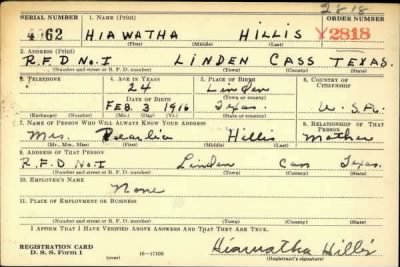 2818
SERIAL NUMBER 1. Name (Print) ORDER NUMBER
62 HIAWATHA HILLIS V2818
(First) (Middle) (Last)
2. Address (Print)
R.F.D No. I LINDEN CASS TEXAS.
(Number and street or R. F. D. number) (Town) (County) (State)
3. Telephone 4. Age in Years 5. Place of Birth 6. Country of Citizenship
24 Linden
(Town or county)
Date of Birth
FEB. 3 1916 Texas. U.S.A.
(Exchange) (Number) (Mo.) (Day) (Yr.) (State or country)
7. Name of Person Who Will Always Know Your Address 8. Relationship of That Person
Mrs. Hillis Mother
(Mr., Mrs., Miss) (First) (Middle) (Last)
9. Address of That Person
R.F.D No. I Linden Cass Texas.
(Number and street or R. F. D. number) (Town) (County) (State)
10. Employer's Name
None
11. Place of Employment or Business
(Number and street or R. F. D. number) (Town) (County) (State)
I Affirm That I Have Verified Above Answers and That They Are True.
REGISTRATION CARD
D. S. S. Form 1 16—17105
Hiawatha Hillis
(Registrant's signature)